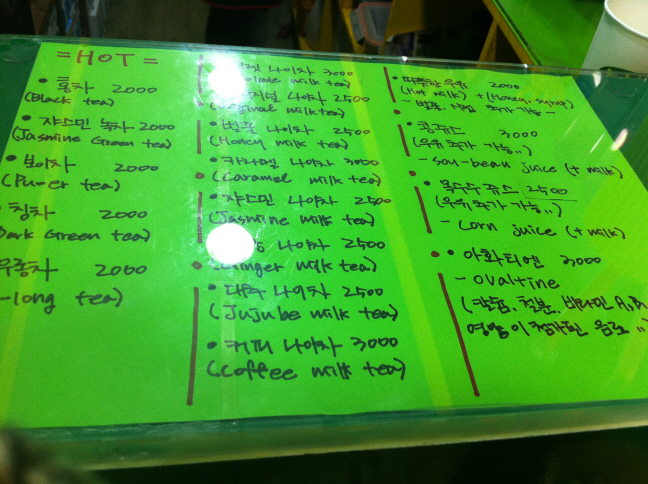 = HOT =
• 홍차 2000
(Black tea)
• 쟈스민 녹차 2000
(Jasmine Green tea)
• 보이차 2000
(Pu-er tea)
청차 2000
Dark Green tea)
우롱차 2000
-long tea)
나이차 3000
olate milk tea)
지널 나이차 2500
ginal milk tea)
• 벌꿀 나이차 2500
(Honey milk tea)
• 카라멜 나이차 3000
(Caramel milk tea)
• 쟈스민 나이차 2500
(Jasmine milk tea)
나이차 2500
Ginger milk tea)
• 대추 나이차 2500
(Jujube milk tea)
• 커피 나이차 3000
(Coffee milk tea)
• 따뜻한 우유 2000
(Hot milk) + (Honey, syrup)
- 벌꿀, 시럽 추가 가능 -
• 콩쥬스 3000
(우유 추가 가능..)
- sou-bean juice (+ milk)
• 옥수수 쥬스 2500
(우유 추가 가능..)
- corn juice (+ milk)
• 아화티엔 3,000
- ovaltine
(칼슘, 철분, 비타민 A,B
영양이 첨가된 음료..)